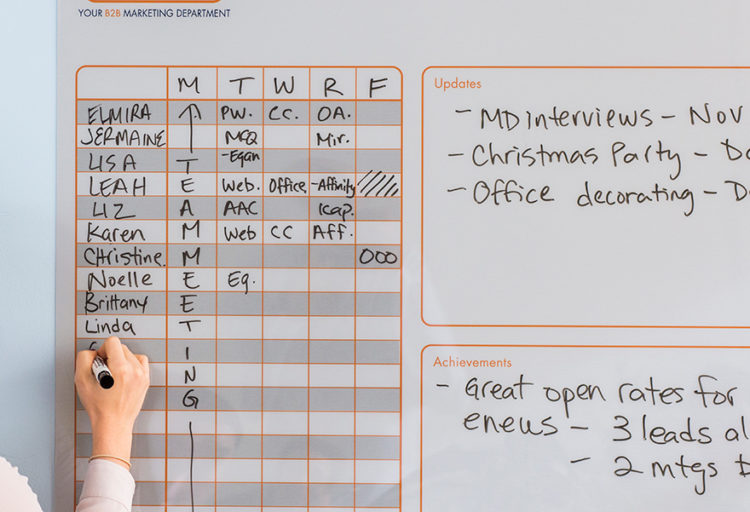 YOUR B2B MARKETING DEPARTMENT
M T W R F
ELMIRA PW. CC. OA.
JERMAINE MCQ Mir.
LISA T -Egan
LEAH E Web. Office -Affinity
LIZ A AAC Icap.
Karen M Web CC Aff.
Christine M OOO
Noelle E Eq.
Brittany E
Linda T
I
N
G
Updates
- MD interviews - Nov
- Christmas Party - D
- Office decorating - D
Achievements
- Great open rates for
enews - 3 leads al
- 2 mtgs